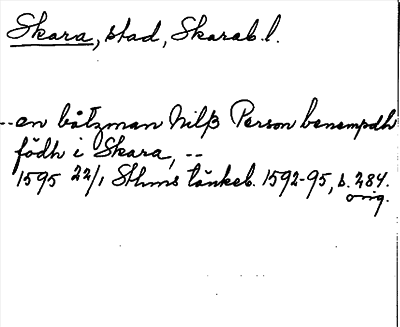 Skara, stad, Skarab. l.
-- en båtzman Nilß Person benempdh
födh i Skara, --
1595 22/1 Sthms tänkeb. 1592-95, s. 284.
orig.